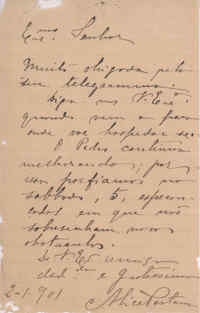 Exmo. Senhor
Muito obrigada pelo
seu telegramma.
Diga-me V. Exa.
quando vem e para
onde vae hospedar-se.
O Pedro continua
melhorando; por
isso no
sabbado, 5,
em que não
novos
obstaculos.
De V. Ex amiga
ded. e
2-1-901 Alice Pestana